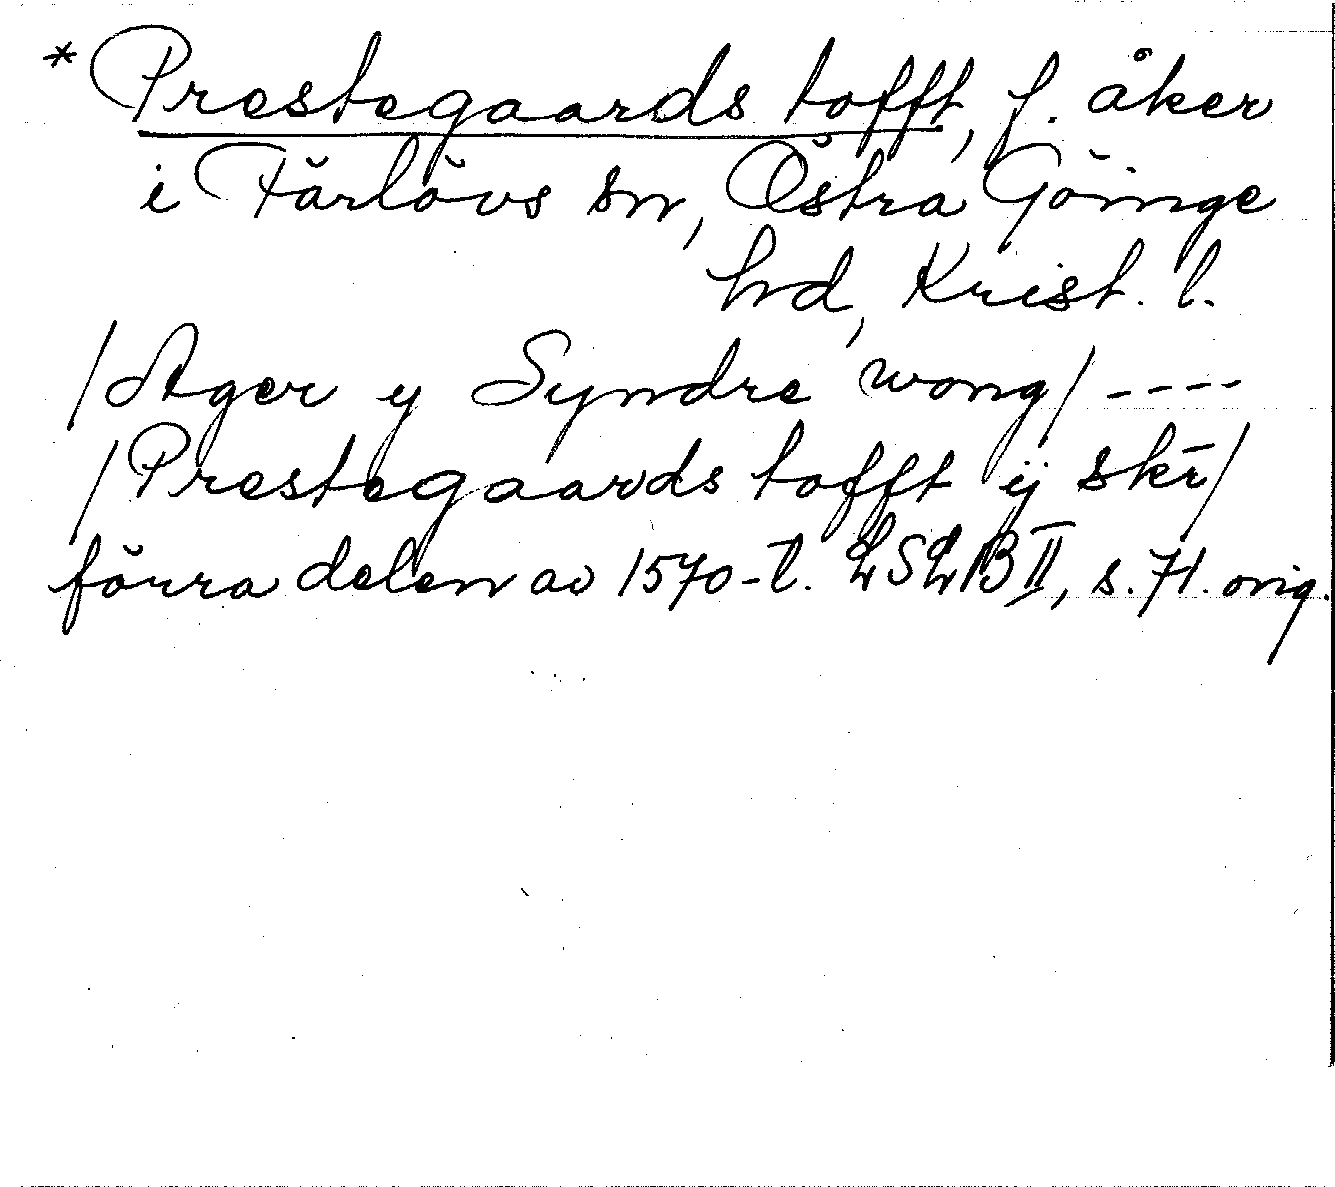 * Prestegaards tofft, f. åker
i Färlövs sn, Östra Göinge
hd, Krist. l.
/Ager y Syndre wong/ ----
/Prestegaards tofft ÿ skr̄/
förra delen av 1570-t. LSLB II, s. 71. orig.